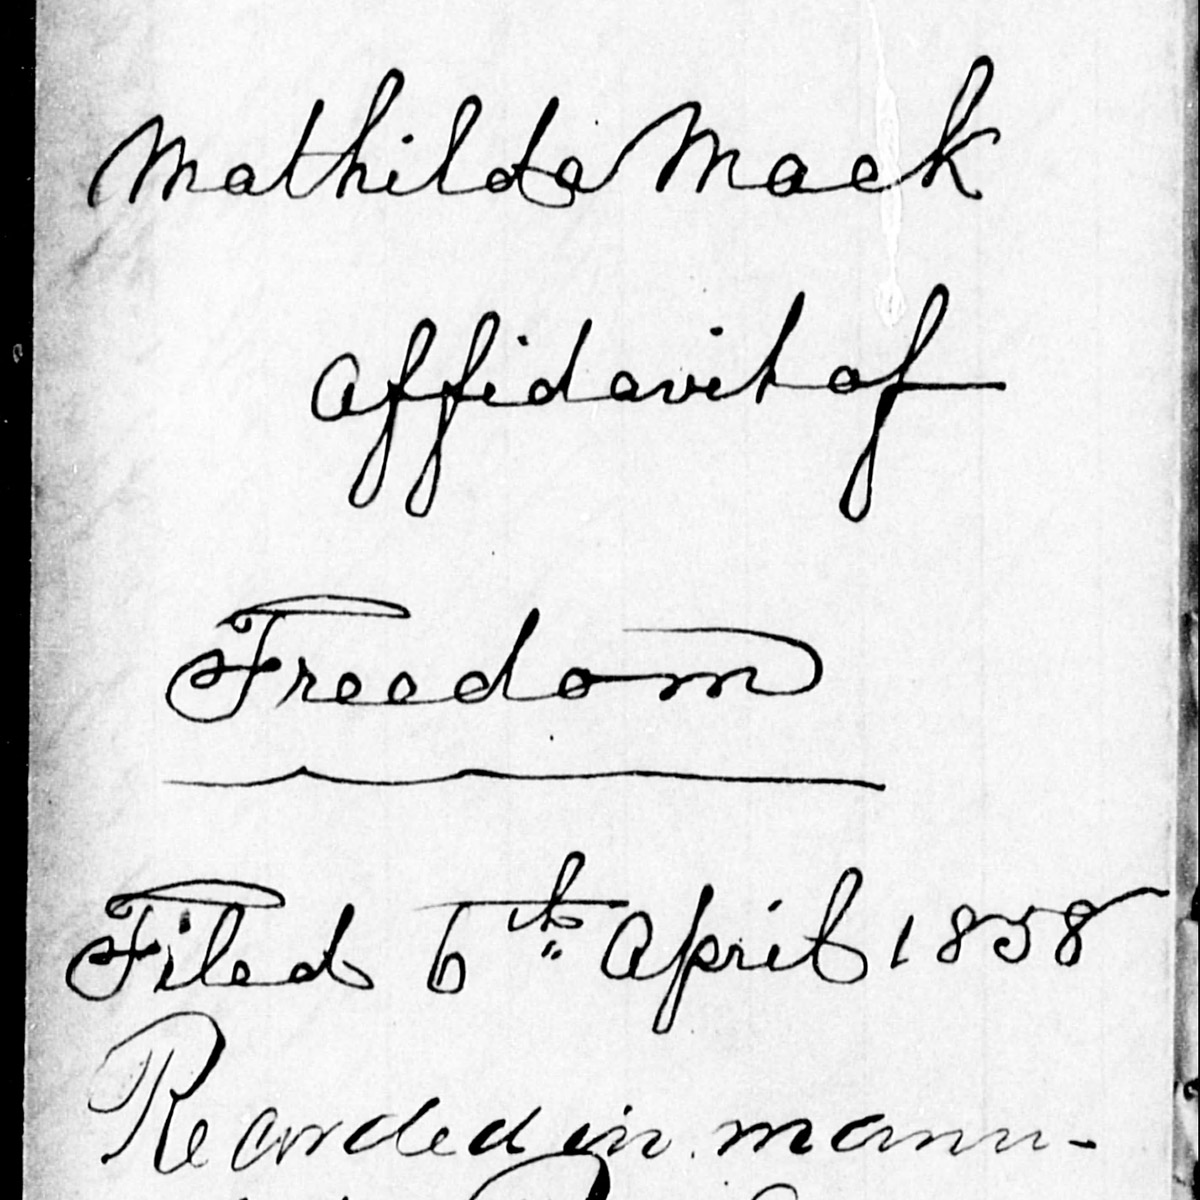 Mathilda Mack
Affidavit of
Freedom
Filed 6th April 1858
Recorded in manu-